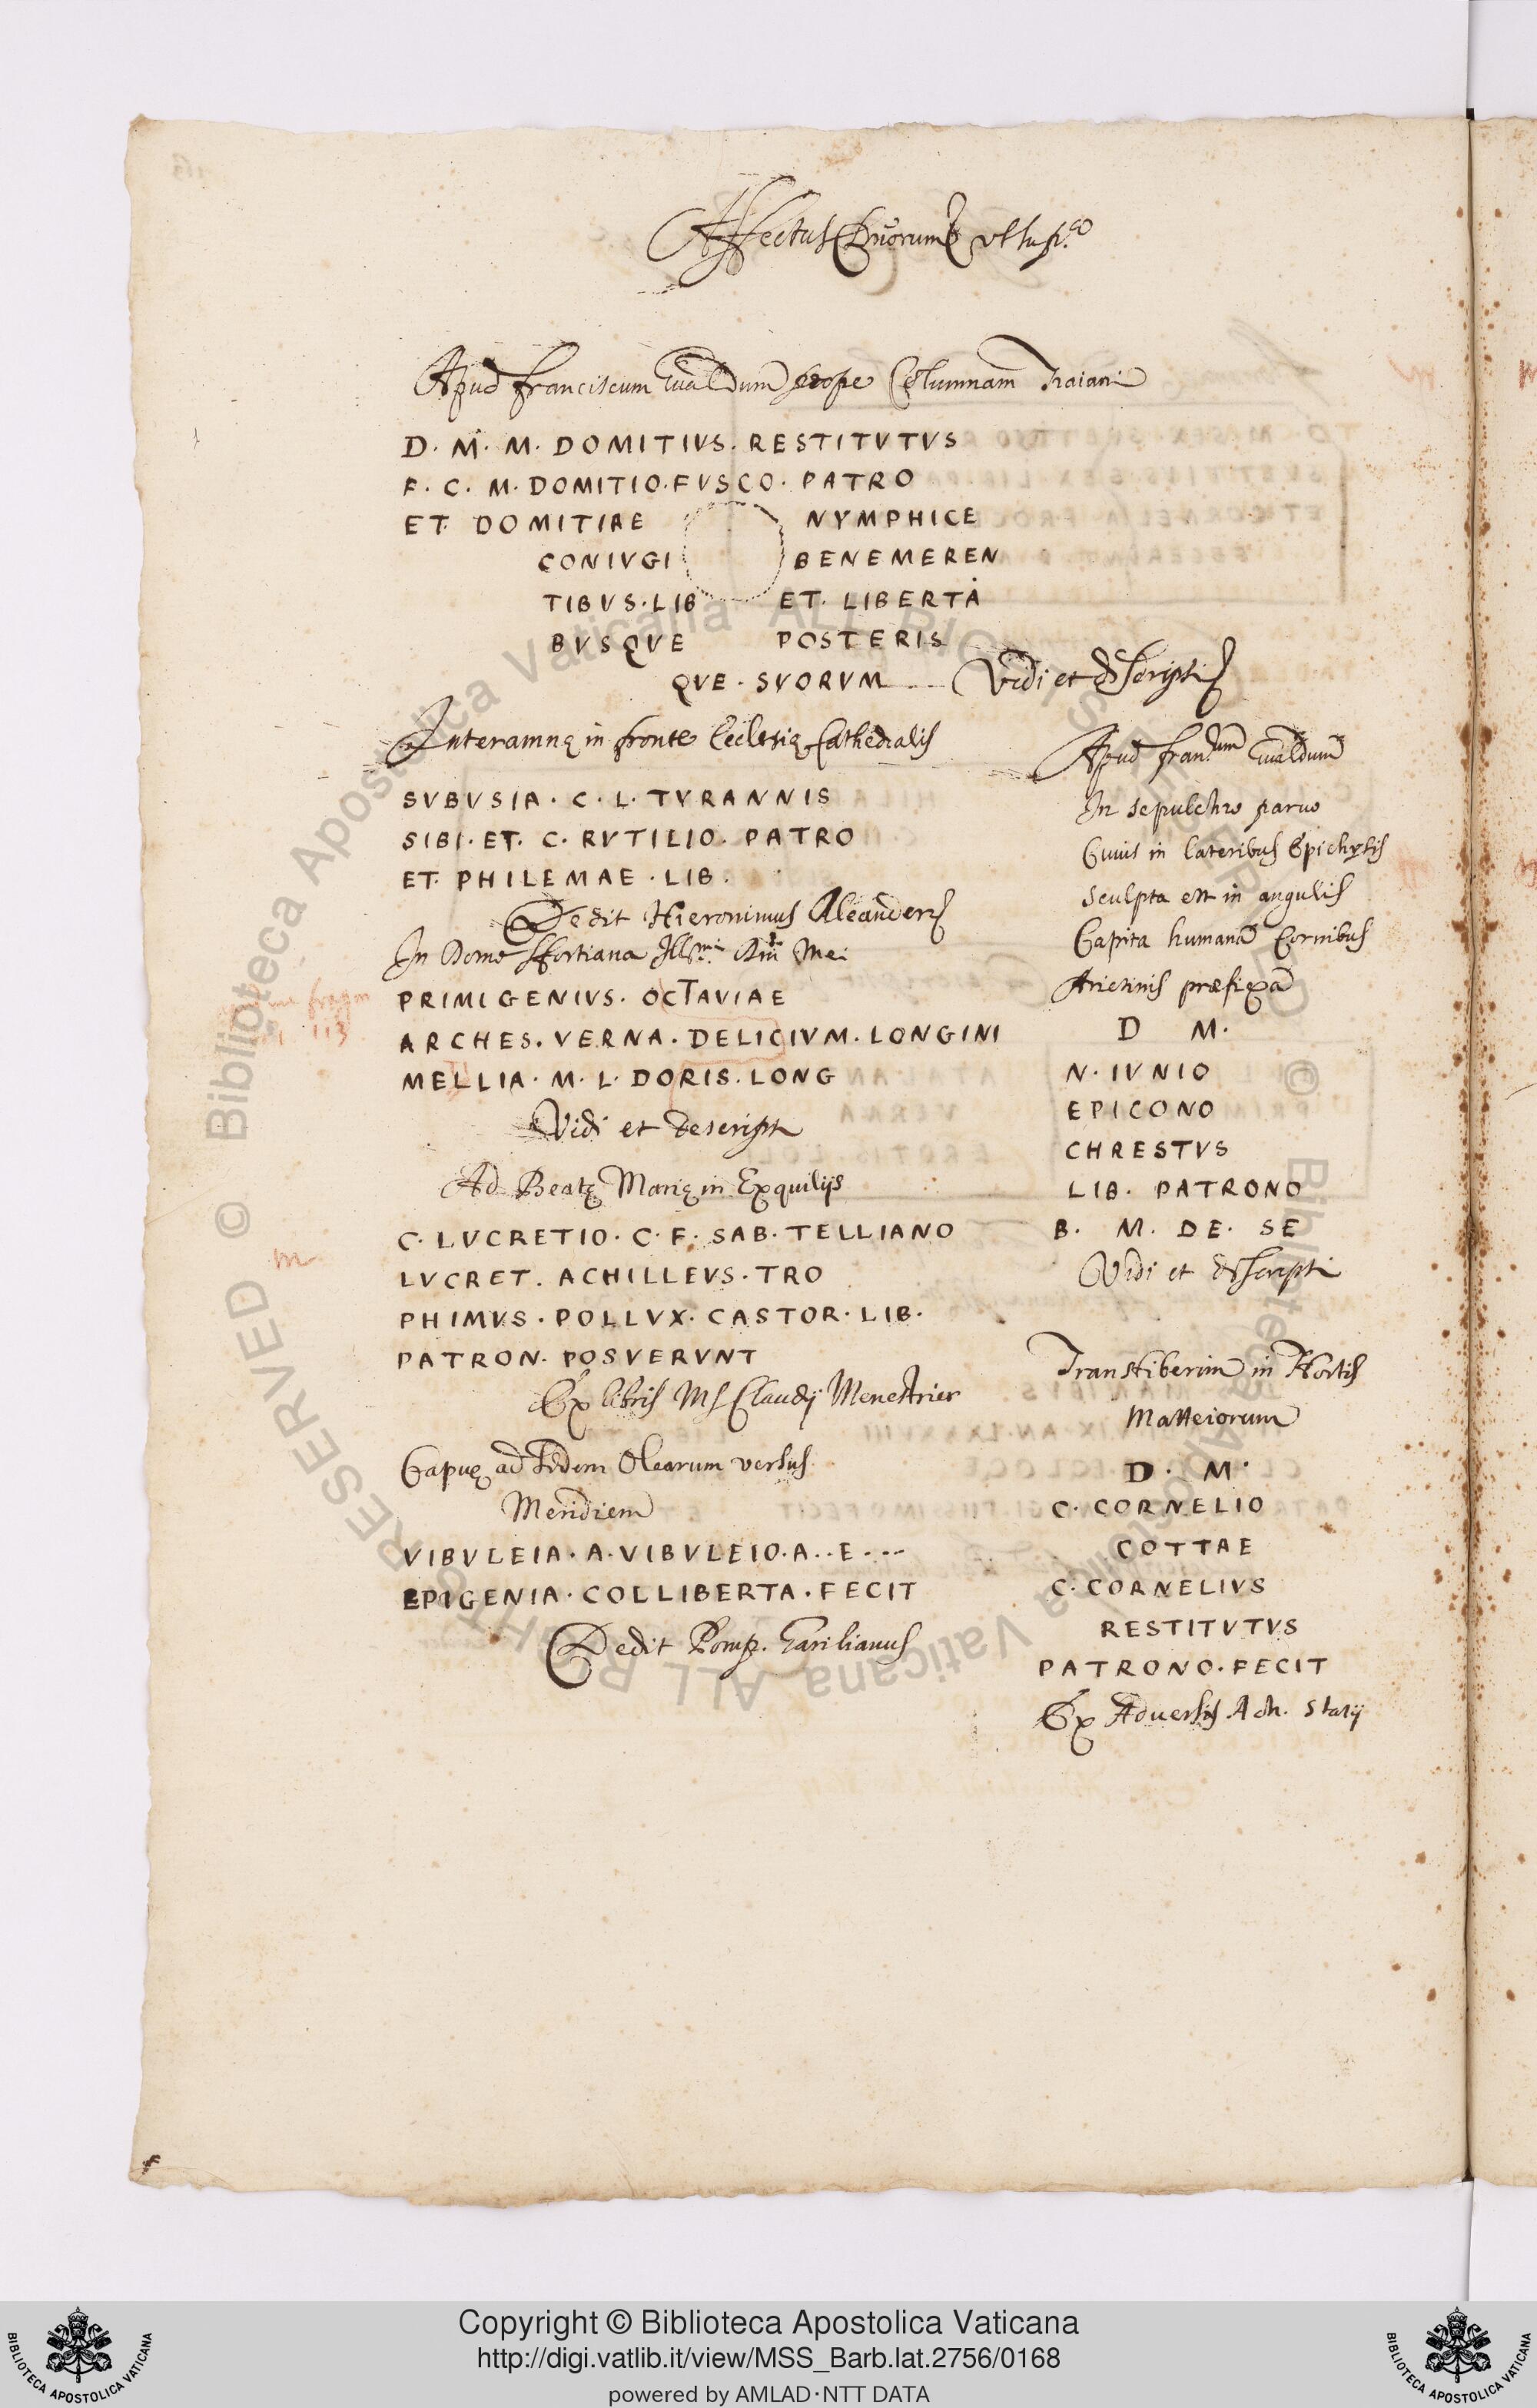 Affectus Dnorum vt sup.ª
Apud franciscum Gualdum prope Columnam Traiani
D. M. M. DOMITIVS. RESTITVTVS
F. C. M. DOMITIO. FVSCO. PATRO
ET DOMITIAE NYMPHICE
CONIVGI BENEMEREN
TIBVS. LIB ET. LIBERTA
BVSQVE POSTERIS
QVE. SVORVM Vidi et descripsi
Interamnę in fronte Ecclesię Cathedralis
SVBVSIA. C. L. TVRANNIS
SIBI. ET. C. RVTILIO. PATRO
ET. PHILEMAE. LIB.
Dedit Hieronimus Aleander
In Domo Sfortiana Illmi Dni Mei
PRIMIGENIVS. OCTAVIAE
ARCHES. VERNA. DELICIVM. LONGINI
MELLIA. M. L. DORIS. LONG
Vidi et descripsi
Ad Beatę Marię in Exquilijs
C. LVCRETIO. C. F. SAB. TELLIANO
LVCRET. ACHILLEVS. TRO
PHIMVS. POLLVX. CASTOR. LIB.
PATRON. POSVERVNT
Ex libris Ms Claudij Menestrier
Capuę ad Ędem Olearum versus
Meridiem
VIBVLEIA. A. VIBVLEIO. A.. E. ---
EPIGENIA. COLLIBERTA. FECIT
Dedit Pomp. Garilianus
Apud fran.um Gualdum
In sepulchro paruo
Cuius in lateribus Epichysis
sculpta est in angulis
Capita humana Cornibus
Arietinis præfixa
D M.
N. IVNIO
EPICONO
CHRESTVS
LIB. PATRONO
B. M. DE. SE
Vidi et descripsi
Transtiberim in Hortis
Matteiorum
D. M.
C. CORNELIO
COTTAE
C. CORNELIVS
RESTITVTVS
PATRONO. FECIT
Ex Aduersis Ach. Statij
m
113
Copyright © Biblioteca Apostolica Vaticana
http://digi.vatlib.it/view/MSS_Barb.lat.2756/0168
powered by AMLAD・NTT DATA
BIBLIOTECA APOSTOLICA VATICANA
BIBLIOTECA APOSTOLICA VATICANA
Biblioteca Apostolica Vaticana ALL RIGHTS RESERVED © Biblioteca Apostolica Vaticana ALL RIGHTS RESERVED ©